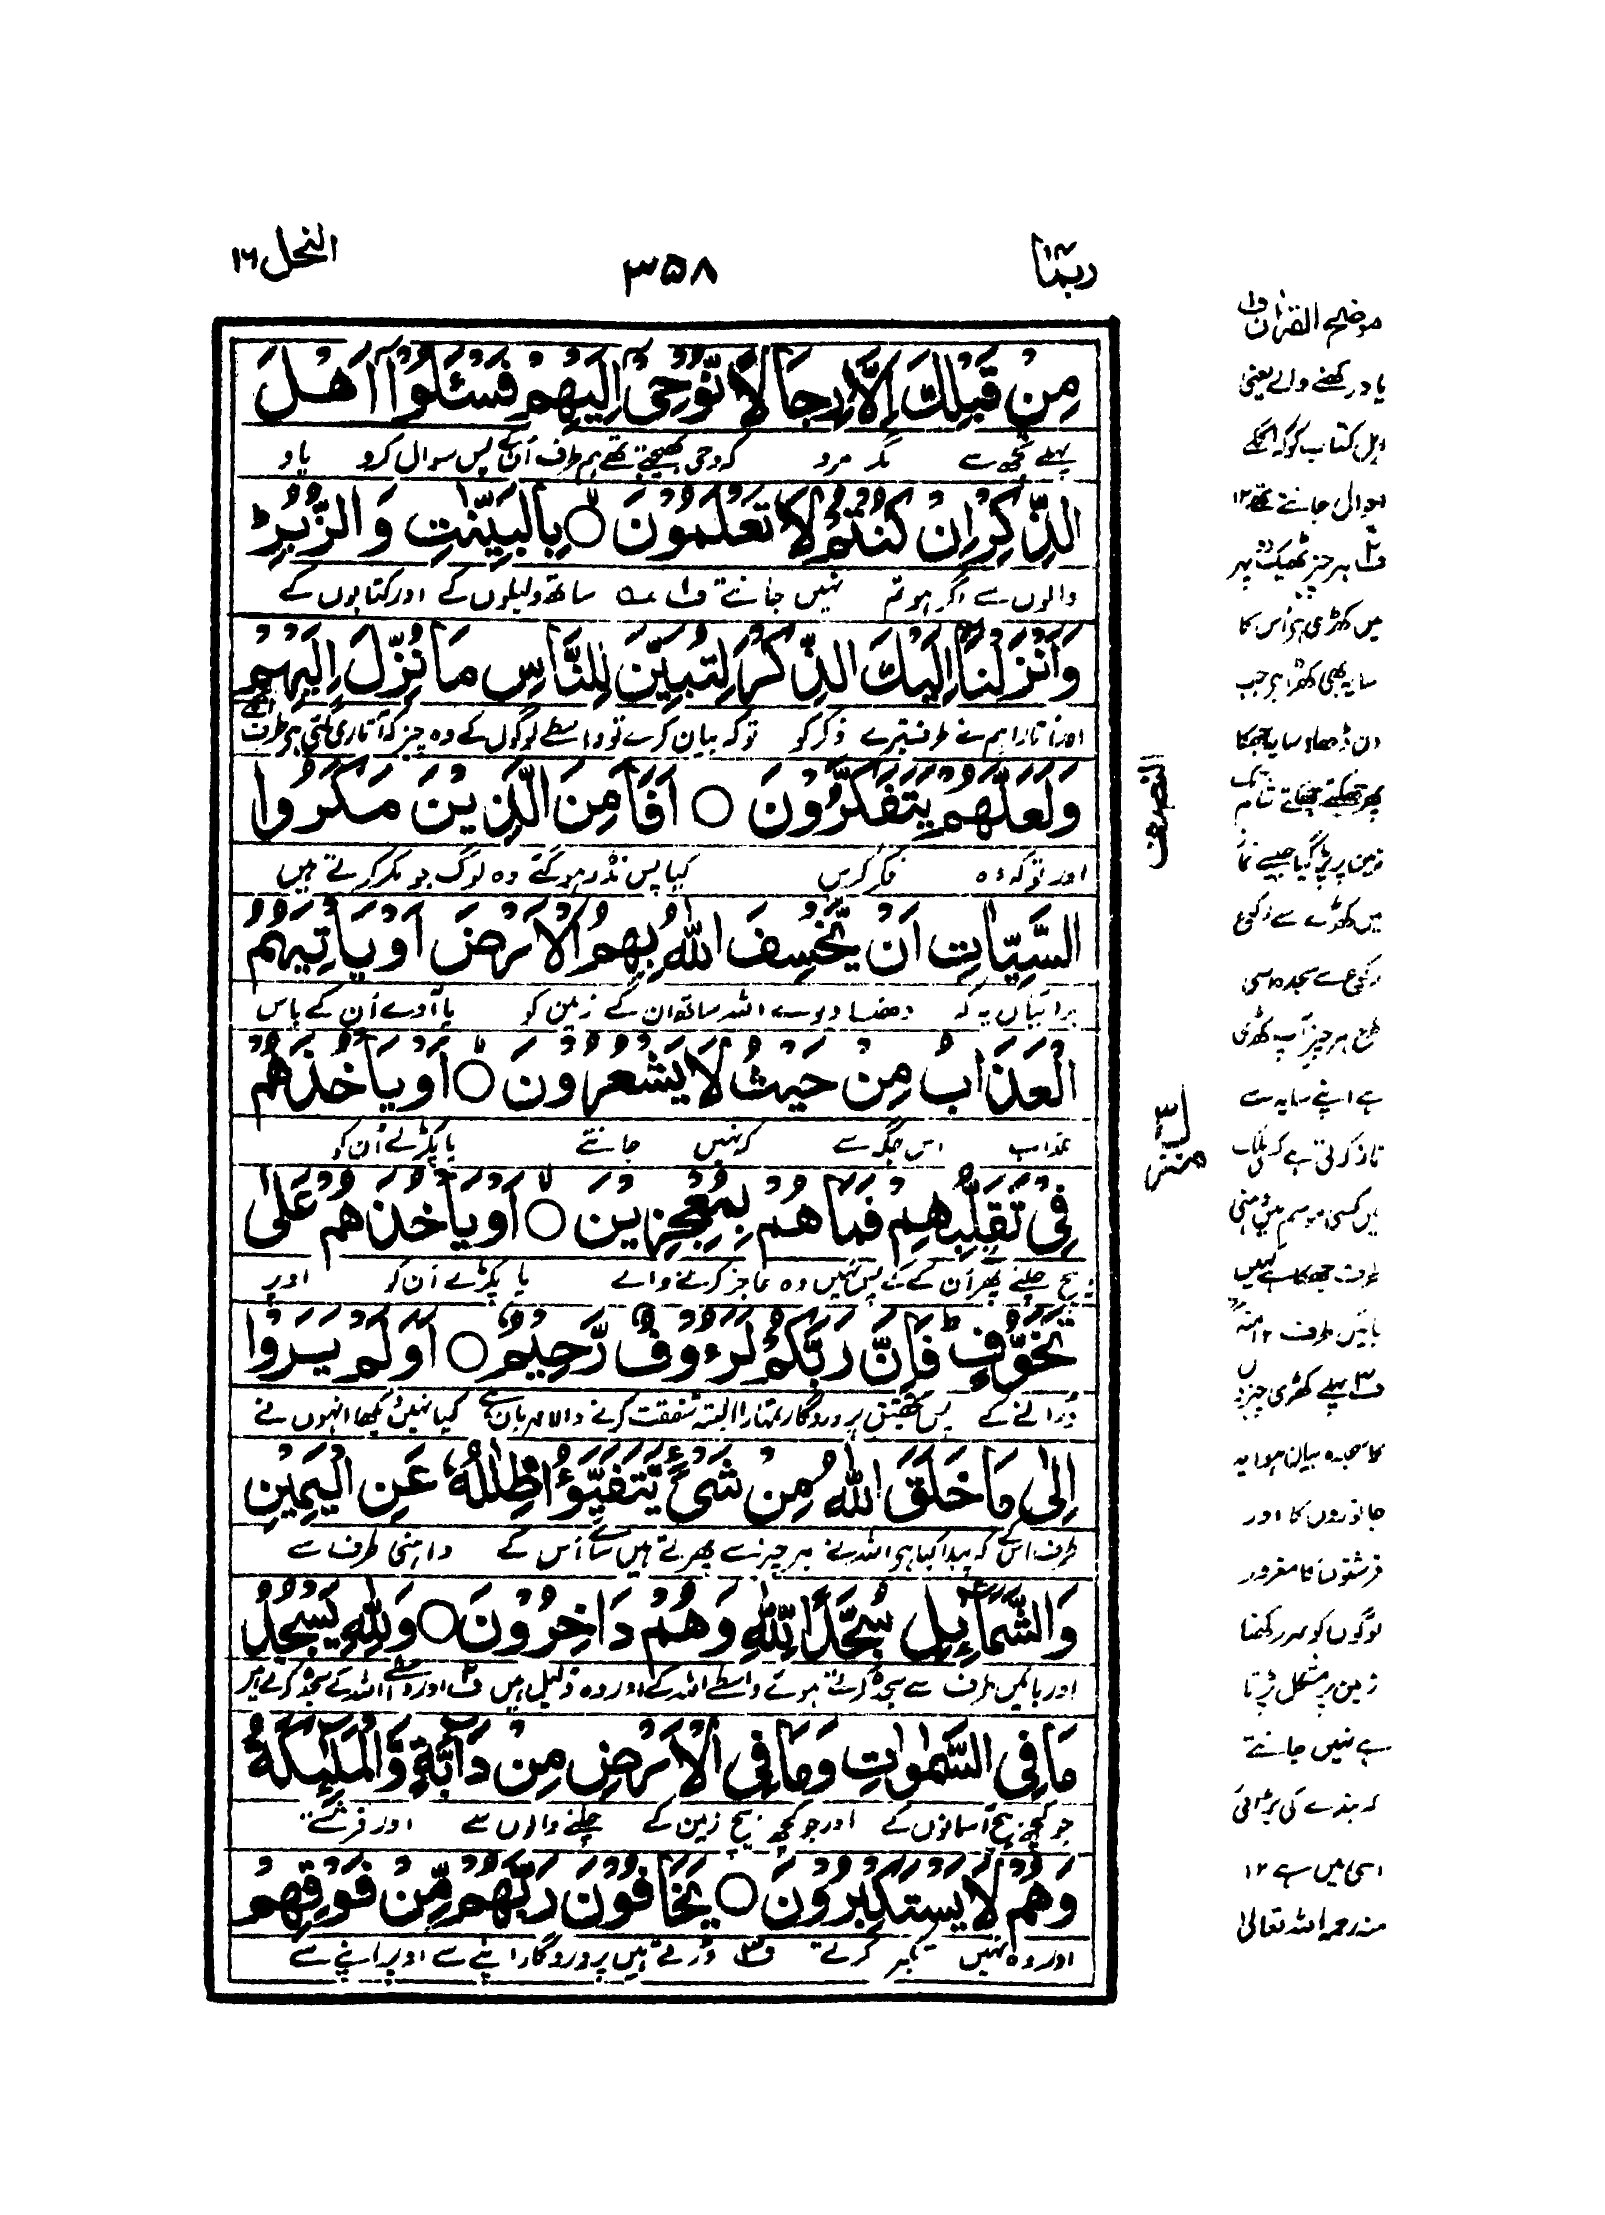 ربما ١٤
٣٥٨
النحل ١٦
مِنْ قَبْلِكَ اِلَّا رِجَالًا نُّوْحِیْۤ اِلَیْهِمْ فَسْـَٔلُوْۤا اَهْلَ
پہلے تجھ سے مگر مرد کہ وحی بھیجتے تھے ہم طرف اُن کے پس سوال کرو یاد
الذِّكْرِ اِنْ كُنْتُمْ لَا تَعْلَمُوْنَ ○ بِالْبَیِّنٰتِ وَ الزُّبُرِ ؕ
والوں سے اگر ہو تم نہیں جانتے ف۱ ساتھ دلیلوں کے اور کتابوں کے
وَ اَنْزَلْنَاۤ اِلَیْكَ الذِّكْرَ لِتُبَیِّنَ لِلنَّاسِ مَا نُزِّلَ اِلَیْهِمْ
اور اُتارا ہم نے طرف تیرے ذکر کو تو کہ بیان کرے تو واسطے لوگوں کے وہ چیز کہ اُتاری گئی ہے طرف انکے
وَ لَعَلَّهُمْ یَتَفَكَّرُوْنَ ○ اَفَاَمِنَ الَّذِیْنَ مَكَرُوا
اور تو کہ وہ فکر کریں کیا پس نڈر ہو گئے وہ لوگ جو مکر کرتے ہیں
السَّیِّاٰتِ اَنْ یَّخْسِفَ اللّٰهُ بِهِمُ الْاَرْضَ اَوْ یَاْتِیَهُمُ
برائیاں یہ کہ دھنسا دیوے اللہ ساتھ ان کے زمین کو یا آوے اُن کے پاس
الْعَذَابُ مِنْ حَیْثُ لَا یَشْعُرُوْنَ ○ اَوْ یَاْخُذَهُمْ
عذاب اس جگہ سے کہ نہیں جانتے یا پکڑلے اُن کو
فِیْ تَقَلُّبِهِمْ فَمَا هُمْ بِمُعْجِزِیْنَ ○ اَوْ یَاْخُذَهُمْ عَلٰی
بیچ چلنے پھر اُن کے کے پس نہیں وہ عاجز کرنے والے یا پکڑے اُن کو اوپر
تَخَوُّفٍ ؕ فَاِنَّ رَبَّكُمْ لَرَءُوْفٌ رَّحِیْمٌ ○ اَوَ لَمْ یَرَوْا
ڈرانے کے پس تحقیق پروردگار تمہارا البتہ شفقت کرنے والا مہربان ہے کیا نہیں دیکھا انہوں نے
اِلٰی مَا خَلَقَ اللّٰهُ مِنْ شَیْءٍ یَّتَفَیَّؤُا ظِلٰلُهٗ عَنِ الْیَمِیْنِ
طرف اس کے کہ پیدا کیا ہے اللہ نے ہر چیز سے پھرتے ہیں سائے اُس کے داہنی طرف سے
وَ الشَّمَآىِٕلِ سُجَّدًا لِّلّٰهِ وَ هُمْ دَاخِرُوْنَ ○ وَ لِلّٰهِ یَسْجُدُ
اور بائیں طرف سے سجدہ کرتے ہوئے واسطے اللہ کے اور وہ ذلیل ہیں ف۲ اور واسطے اللہ کے سجدہ کرتے ہیں
مَا فِی السَّمٰوٰتِ وَ مَا فِی الْاَرْضِ مِنْ دَآبَّةٍ وَّ الْمَلٰٓىِٕكَةُ
جو کچھ بیچ آسمانوں کے اور جو کچھ بیچ زمین کے چلنے والوں سے اور فرشتے
وَ هُمْ لَا یَسْتَكْبِرُوْنَ ○ یَخَافُوْنَ رَبَّهُمْ مِّنْ فَوْقِهِمْ
اور وہ نہیں تکبر کرتے ف۳ ڈرتے ہیں پروردگار اپنے سے اوپر اپنے سے
النصف
منزل ٣
موضح القرآن ف۱
یاد رکھنے والے یعنی
اہل کتاب کو کہ اگلے
احوال جانتے تھے ۱۲
ف۲ ہر چیز ٹھیک دوپہر
میں کھڑی ہے اُس کا
سایہ بھی کھڑا ہے جب
دن ڈھلا سایہ جھکا
پھر جھکتے جھکتے شام تک
زمین پر پڑ گیا جیسے نماز
میں کھڑے سے رکوع
رکوع سے سجدہ اسی
طرح ہر چیز آپ کھڑی
ہے اپنے سایہ سے
نماز کرتی ہے کسی ملک
میں کسی موسم میں داہنی
طرف جھکتا ہے کہیں
بائیں طرف ۱۲ منہ
ف۳ پہلے کھڑی چیزوں
کا سجدہ بیان ہوا یہ
جانوروں کا اور
فرشتوں کا مغرور
لوگوں کو سر رکھنا
زمین پر مشکل پڑتا
ہے نہیں جانتے
کہ بندے کی بڑائی
اسی میں ہے ۱۲
منہ رحمہ اللہ تعالیٰ